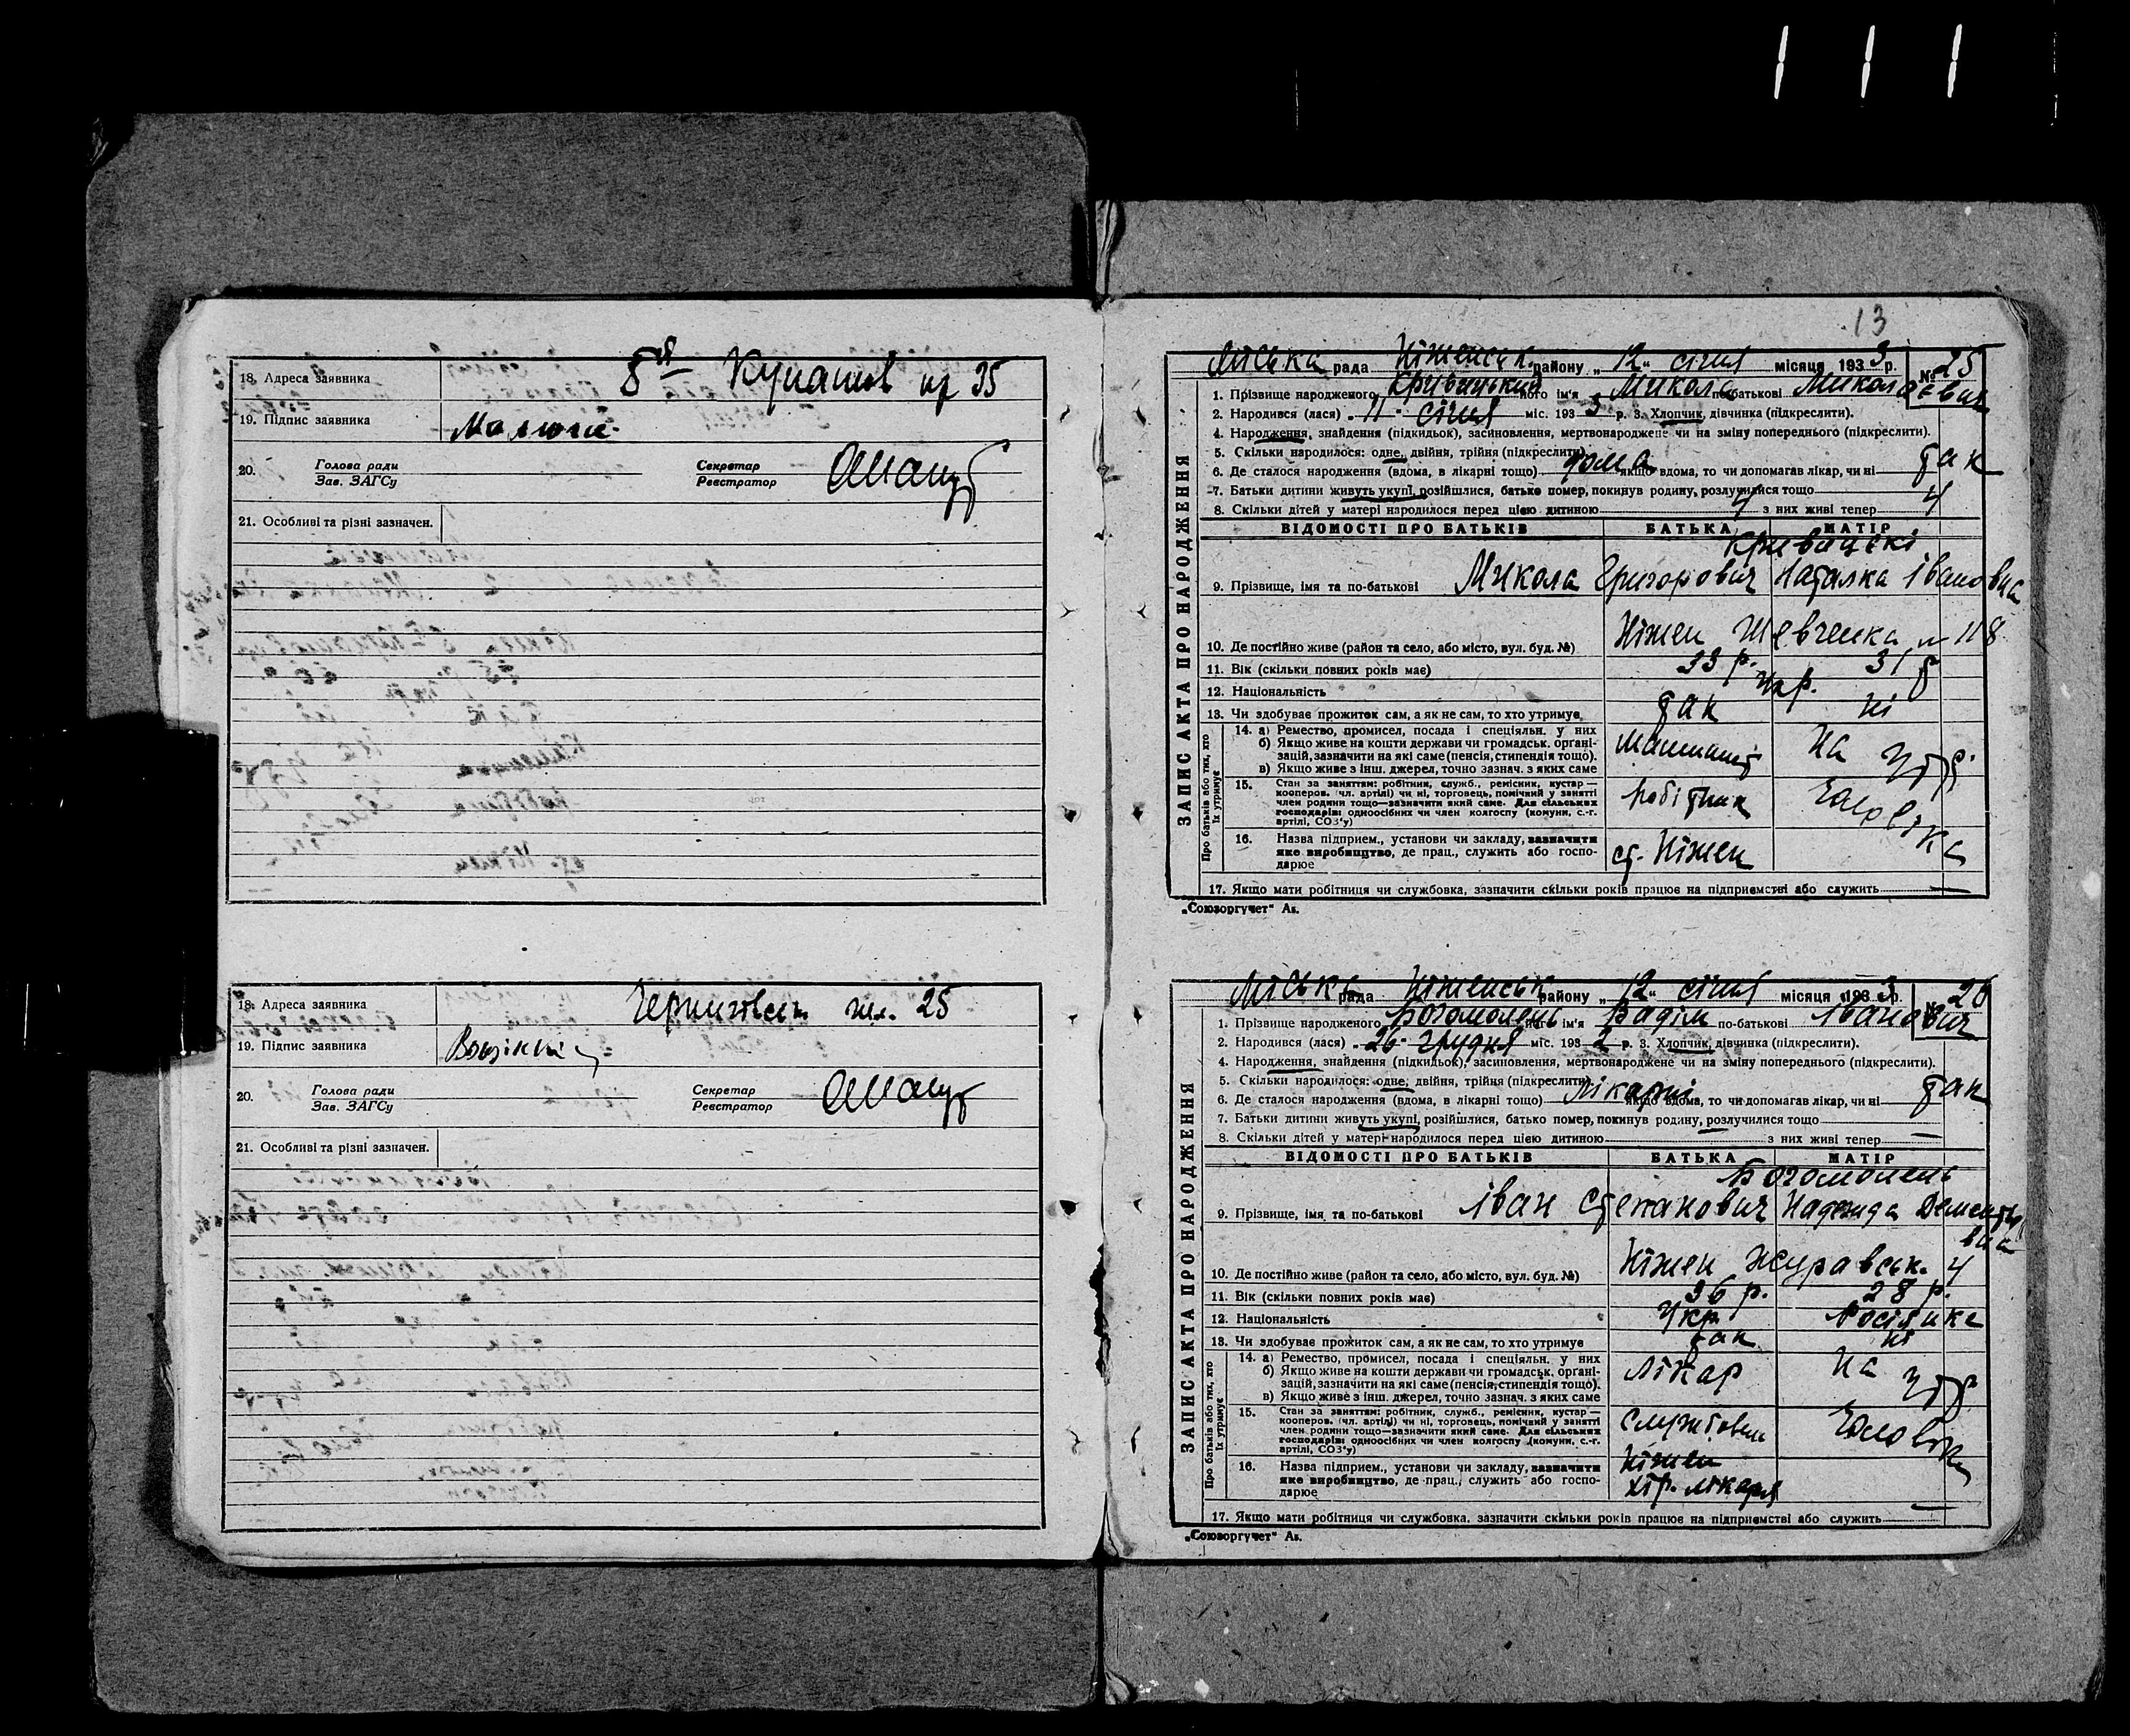 18. Адреса заявника 8ий Купашов пр 35
19. Підпис заявника
20. Голова ради Секретар
Зав. ЗАГСу Реєстратор
21. Особливі та різні зазначен.
18. Адреса заявника Чернигівськ 25
19. Підпис заявника
20. Голова ради Секретар
Зав. ЗАГСу Реєстратор
21. Особливі та різні зазначен.
13
ЗАПИС АКТА ПРО НАРОДЖЕННЯ
Міська рада Ніженськ. району „12“ січня місяця 1933 р. № 25
1. Прізвище народженого Кривицький його ім'я Микола по-батькові Миколаєвич
2. Народився (лася) 11 січня міс. 1933 р. 3. Хлопчик, дівчинка (підкреслити).
4. Народження, знайдення (підкидьок), засиновлення, мертвонароджене чи на зміну попереднього (підкреслити).
5. Скільки народилося: одне, двійня, трійня (підкреслити)
6. Де сталося народження (вдома, в лікарні тощо) дома якщо вдома, то чи допомагав лікар, чи ні так
7. Батьки дитини живуть укупі, розійшлися, батько помер, покинув родину, розлучилися тощо
8. Скільки дітей у матері народилося перед цією дитиною 4 з них живі тепер 4
ВІДОМОСТІ ПРО БАТЬКІВ БАТЬКА МАТІР
Кривицькі
9. Прізвище, імя та по-батькові Микола Григорович Наталка Івановна
10. Де постійно живе (район та село, або місто, вул. буд. №) Ніжен Шевченка 118
11. Вік (скільки повних років має) 33 р. 31 р
12. Національність укр.
13. Чи здобуває прожиток сам, а як не сам, то хто утримує так ні
Про батьків або тих, хто їх утримує
14. а) Ремество, промисел, посада і спеціяльн. у них
б) Якщо живе на кошти держави чи громадськ. органі-
зацій, зазначити на які саме (пенсія, стипендія тощо).
в) Якщо живе з інш. джерел, точно зазнач. з яких саме
машиніст На утр.
15. Стан за заняттям: робітник, служб., ремісник, кустар—
кооперов. (чл. артілі) чи ні, торговець, помічний у занятті
член родини тощо—зазначити який саме. Для сільських
господарів: одноосібних чи член колгоспу (комуни, с.-г.
артілі, СОЗ'у)
робітник чоловіка
16. Назва підприєм., установи чи закладу, зазначити
яке виробництво, де прац., служить або госпо-
дарює
ст. Ніжен
17. Якщо мати робітниця чи службовка, зазначити скільки років працює на підприємстві або служить —
„Союзоргучет“ Ак.
ЗАПИС АКТА ПРО НАРОДЖЕННЯ
Міська рада Ніженськ району „12“ січня місяця 1933 р. № 26
1. Прізвище народженого Богомолець його ім'я Вадім по-батькові Іванович
2. Народився (лася) 26 грудня міс. 1932 р. 3. Хлопчик, дівчинка (підкреслити).
4. Народження, знайдення (підкидьок), засиновлення, мертвонароджене чи на зміну попереднього (підкреслити).
5. Скільки народилося: одне, двійня, трійня (підкреслити)
6. Де сталося народження (вдома, в лікарні тощо) лікарні якщо вдома, то чи допомагав лікар, чи ні так
7. Батьки дитини живуть укупі, розійшлися, батько помер, покинув родину, розлучилися тощо
8. Скільки дітей у матері народилося перед цією дитиною — з них живі тепер —
ВІДОМОСТІ ПРО БАТЬКІВ БАТЬКА МАТІР
Богомолець
9. Прізвище, імя та по-батькові Іван Степанович Надежда
10. Де постійно живе (район та село, або місто, вул. буд. №) Ніжен Журавськ. 4
11. Вік (скільки повних років має) 36 р. 28 р.
12. Національність Укр Росіянка
13. Чи здобуває прожиток сам, а як не сам, то хто утримує так ні
Про батьків або тих, хто їх утримує
14. а) Ремество, промисел, посада і спеціяльн. у них
б) Якщо живе на кошти держави чи громадськ. органі-
зацій, зазначити на які саме (пенсія, стипендія тощо).
в) Якщо живе з інш. джерел, точно зазнач. з яких саме
лікар На утр
15. Стан за заняттям: робітник, служб., ремісник, кустар—
кооперов. (чл. артілі) чи ні, торговець, помічний у занятті
член родини тощо—зазначити який саме. Для сільських
господарів: одноосібних чи член колгоспу (комуни, с.-г.
артілі, СОЗ'у)
службовець чоловіка
16. Назва підприєм., установи чи закладу, зазначити
яке виробництво, де прац., служить або госпо-
дарює
Ніжен
хір. лікарня
17. Якщо мати робітниця чи службовка, зазначити скільки років працює на підприємстві або служить —
„Союзоргучет“ Ак.